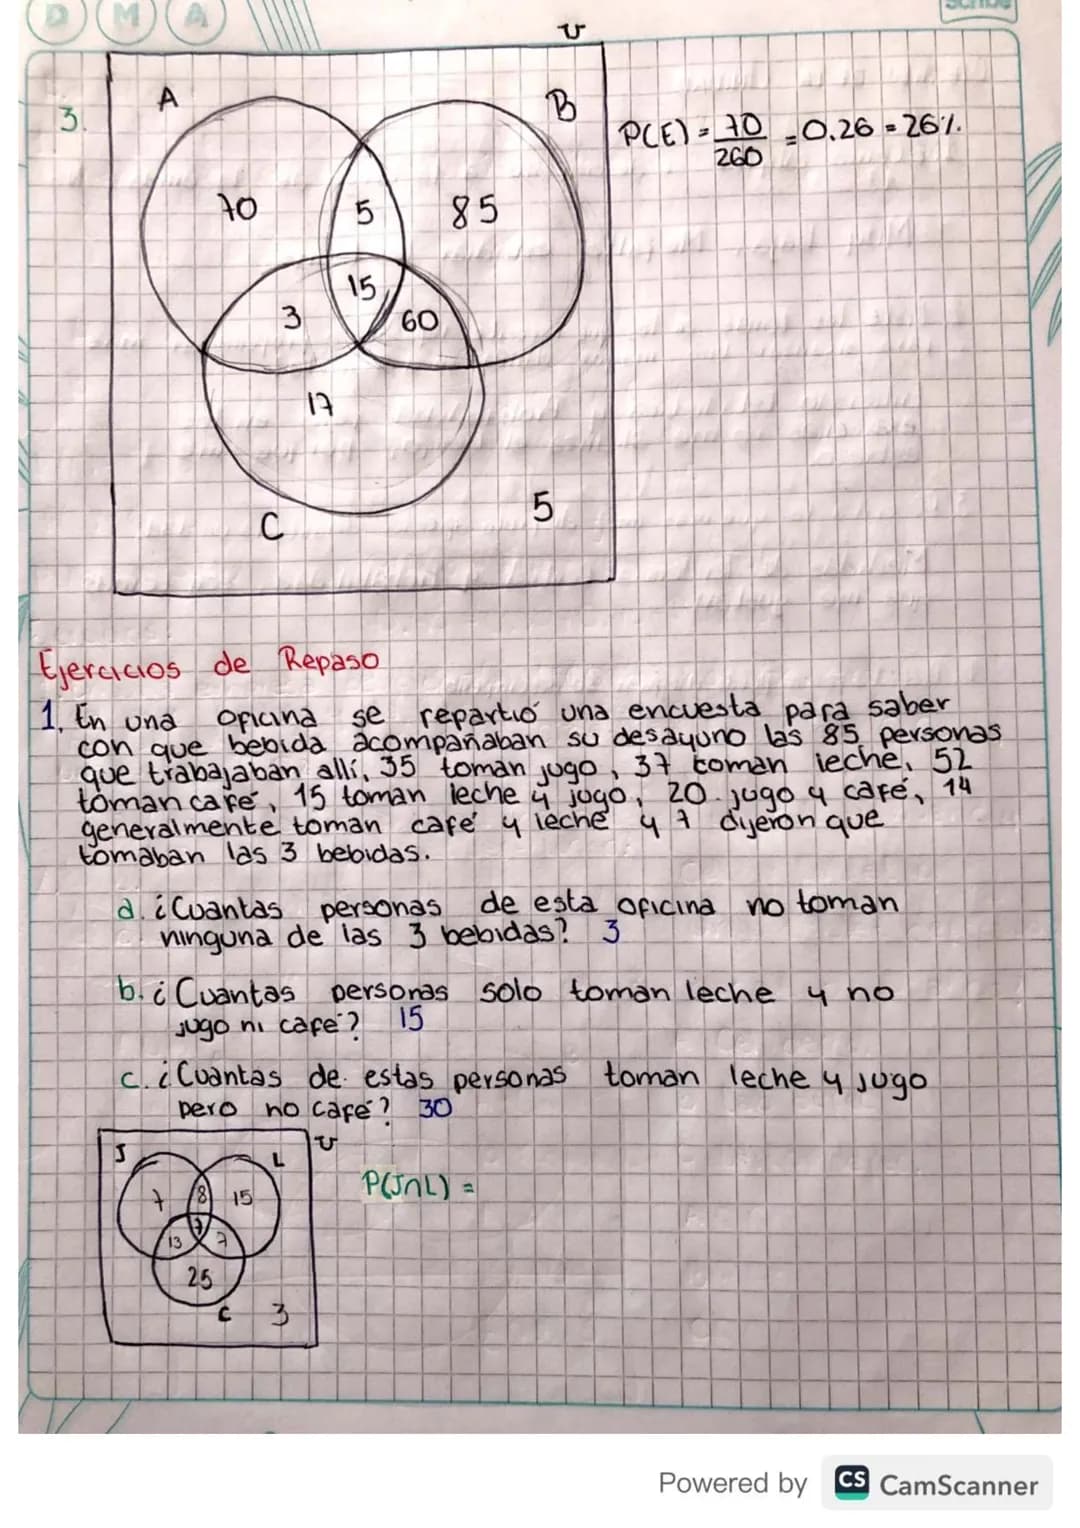 D M A
Scribe
U
3.
A
B
P(E) = 70/260 = 0.26 = 26%.
70
5
85
15
3
60
17
5
C
Ejercicios de Repaso
1. En una oficina se repartió una encuesta para saber
con que bebida acompañaban su desayuno las 85 personas
que trabajaban allí, 35 toman jugo, 37 toman leche, 52
toman café, 15 toman leche y jugo, 20 jugo y café, 14
generalmente toman café y leche y 7 dijeron que
tomaban las 3 bebidas.
a. ¿Cuantas personas de esta oficina no toman
ninguna de las 3 bebidas? 3
b. ¿Cuantas personas solo toman leche y no
jugo ni café? 15
c. ¿Cuantas de estas personas toman leche y jugo
pero no café? 30
U
J
L
P(J∩L) =
7
8
15
7
13
7
25
C
3
Powered by CS CamScanner